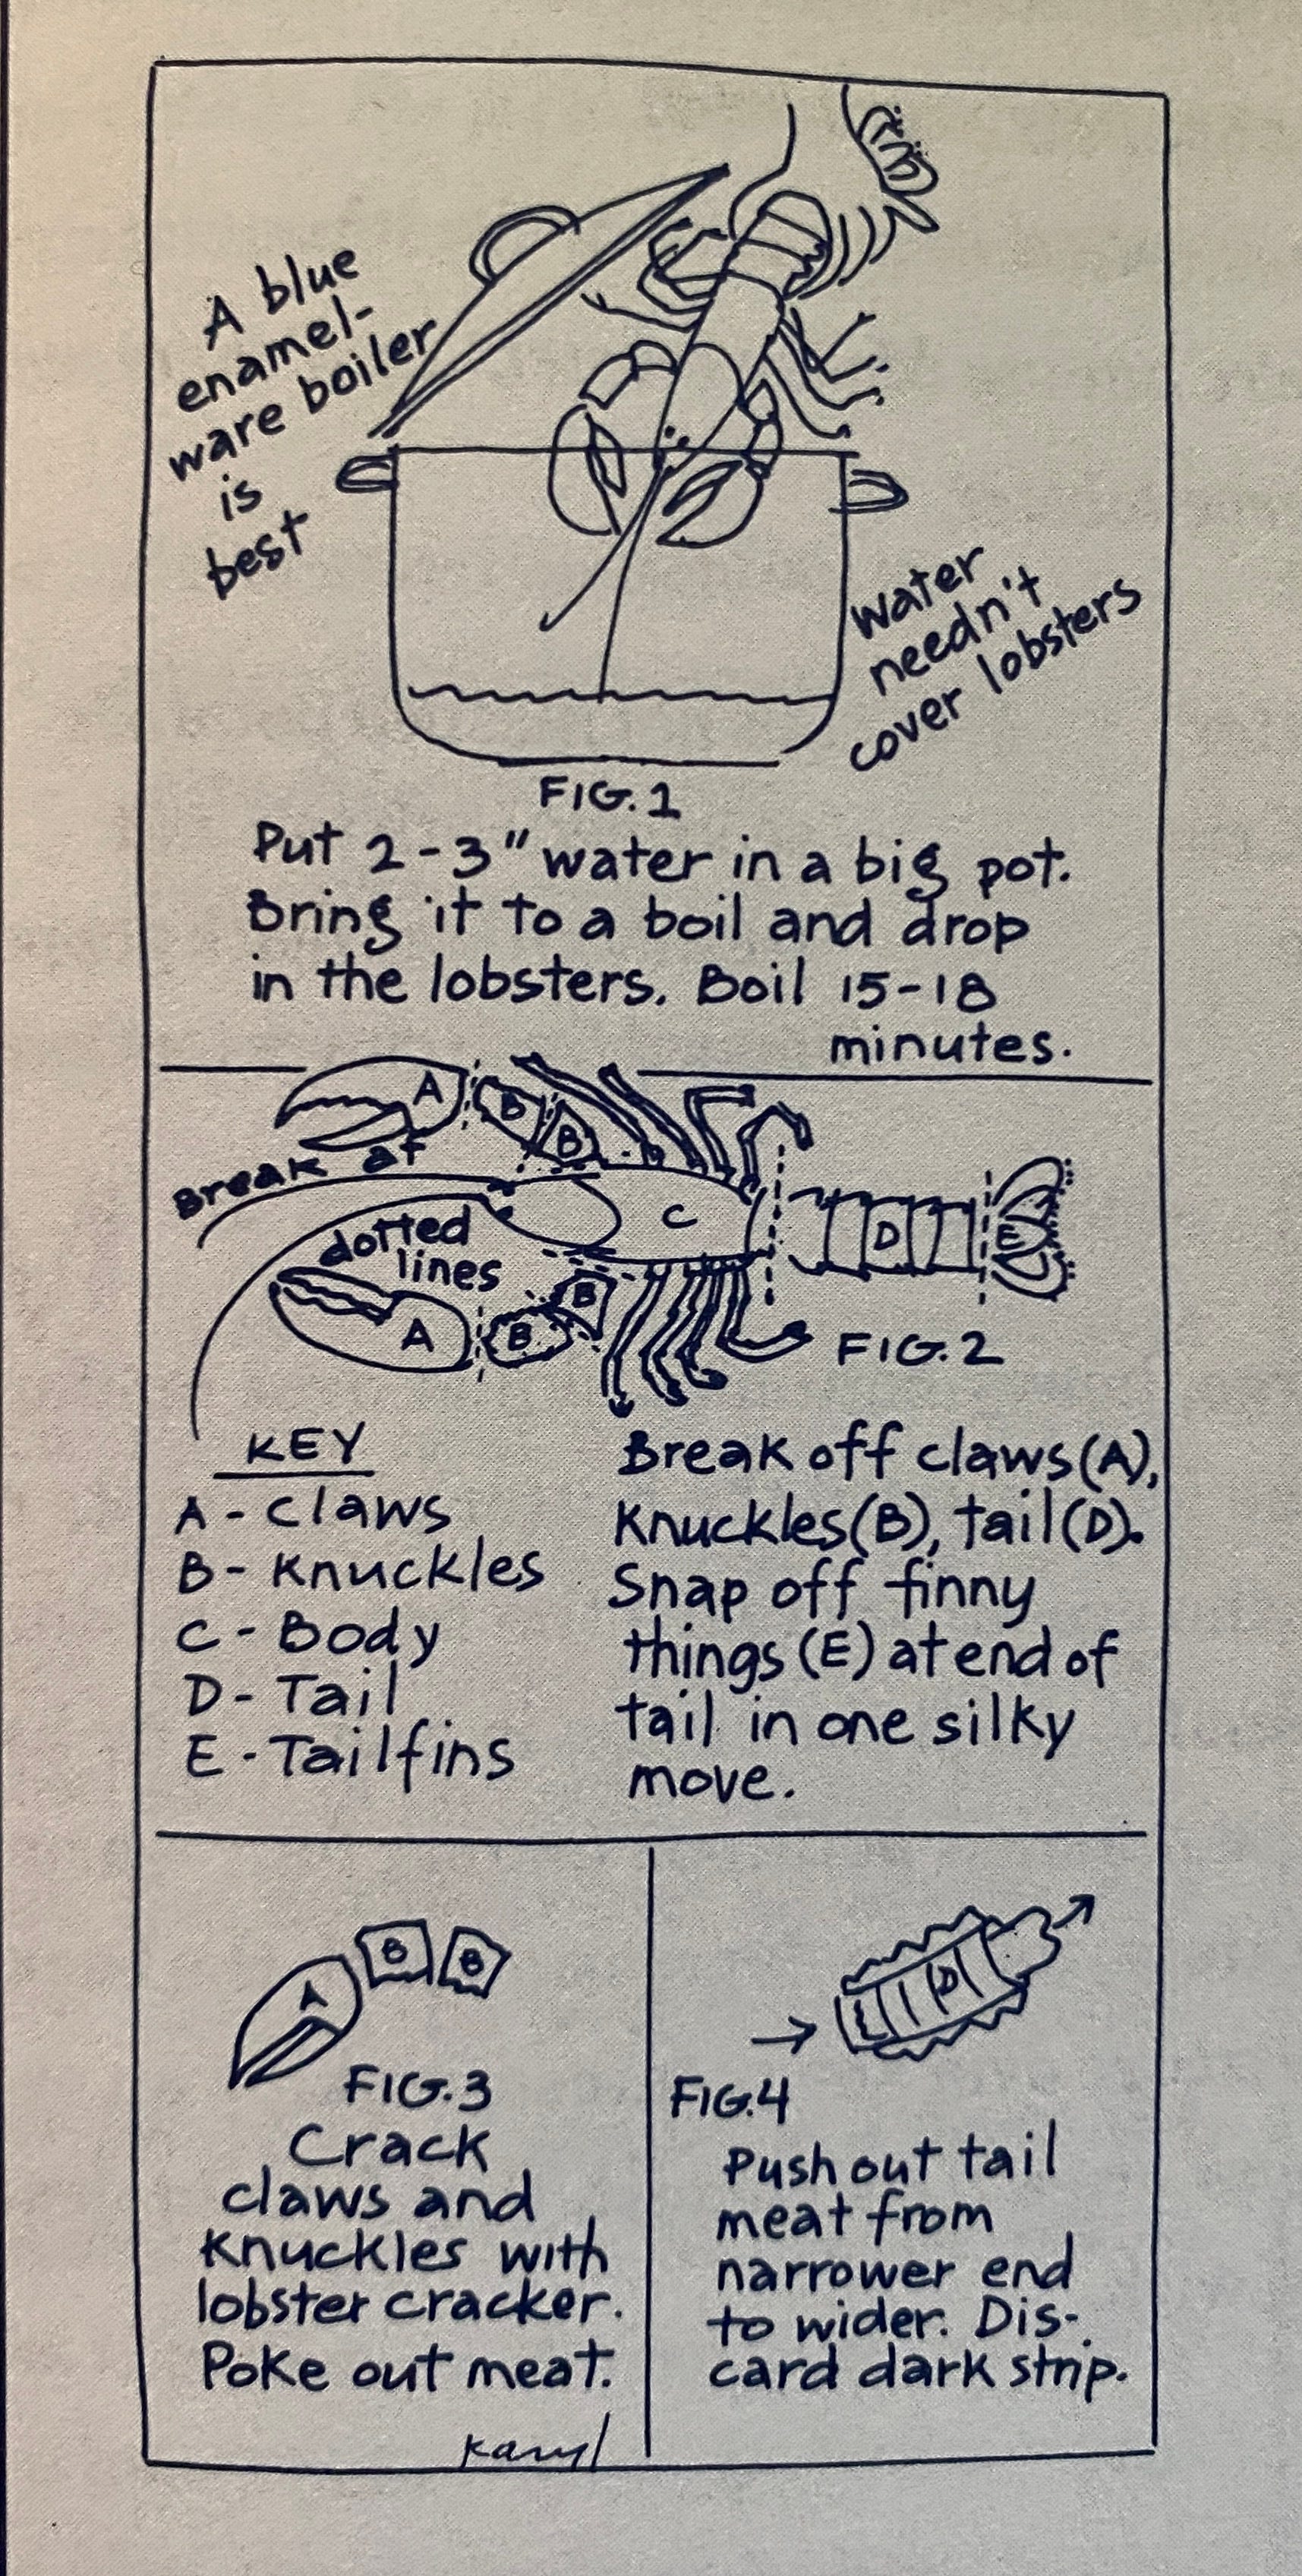 A blue
enamel-
ware boiler
is
best
Water
needn't
cover lobsters
FIG. 1
Put 2-3" water in a big pot.
Bring it to a boil and drop
in the lobsters. Boil 15-18
minutes.
A
B
B
Break at
dotted
lines
C
D
E
A
B
B
FIG. 2
KEY
A - Claws
B - Knuckles
C - Body
D - Tail
E - Tailfins
Break off claws (A),
Knuckles (B), tail (D).
Snap off finny
things (E) at end of
tail in one silky
move.
A
B
B
FIG. 3
Crack
claws and
Knuckles with
lobster cracker.
Poke out meat.
D
FIG. 4
Push out tail
meat from
narrower end
to wider. Dis-
card dark strip.
Karyl